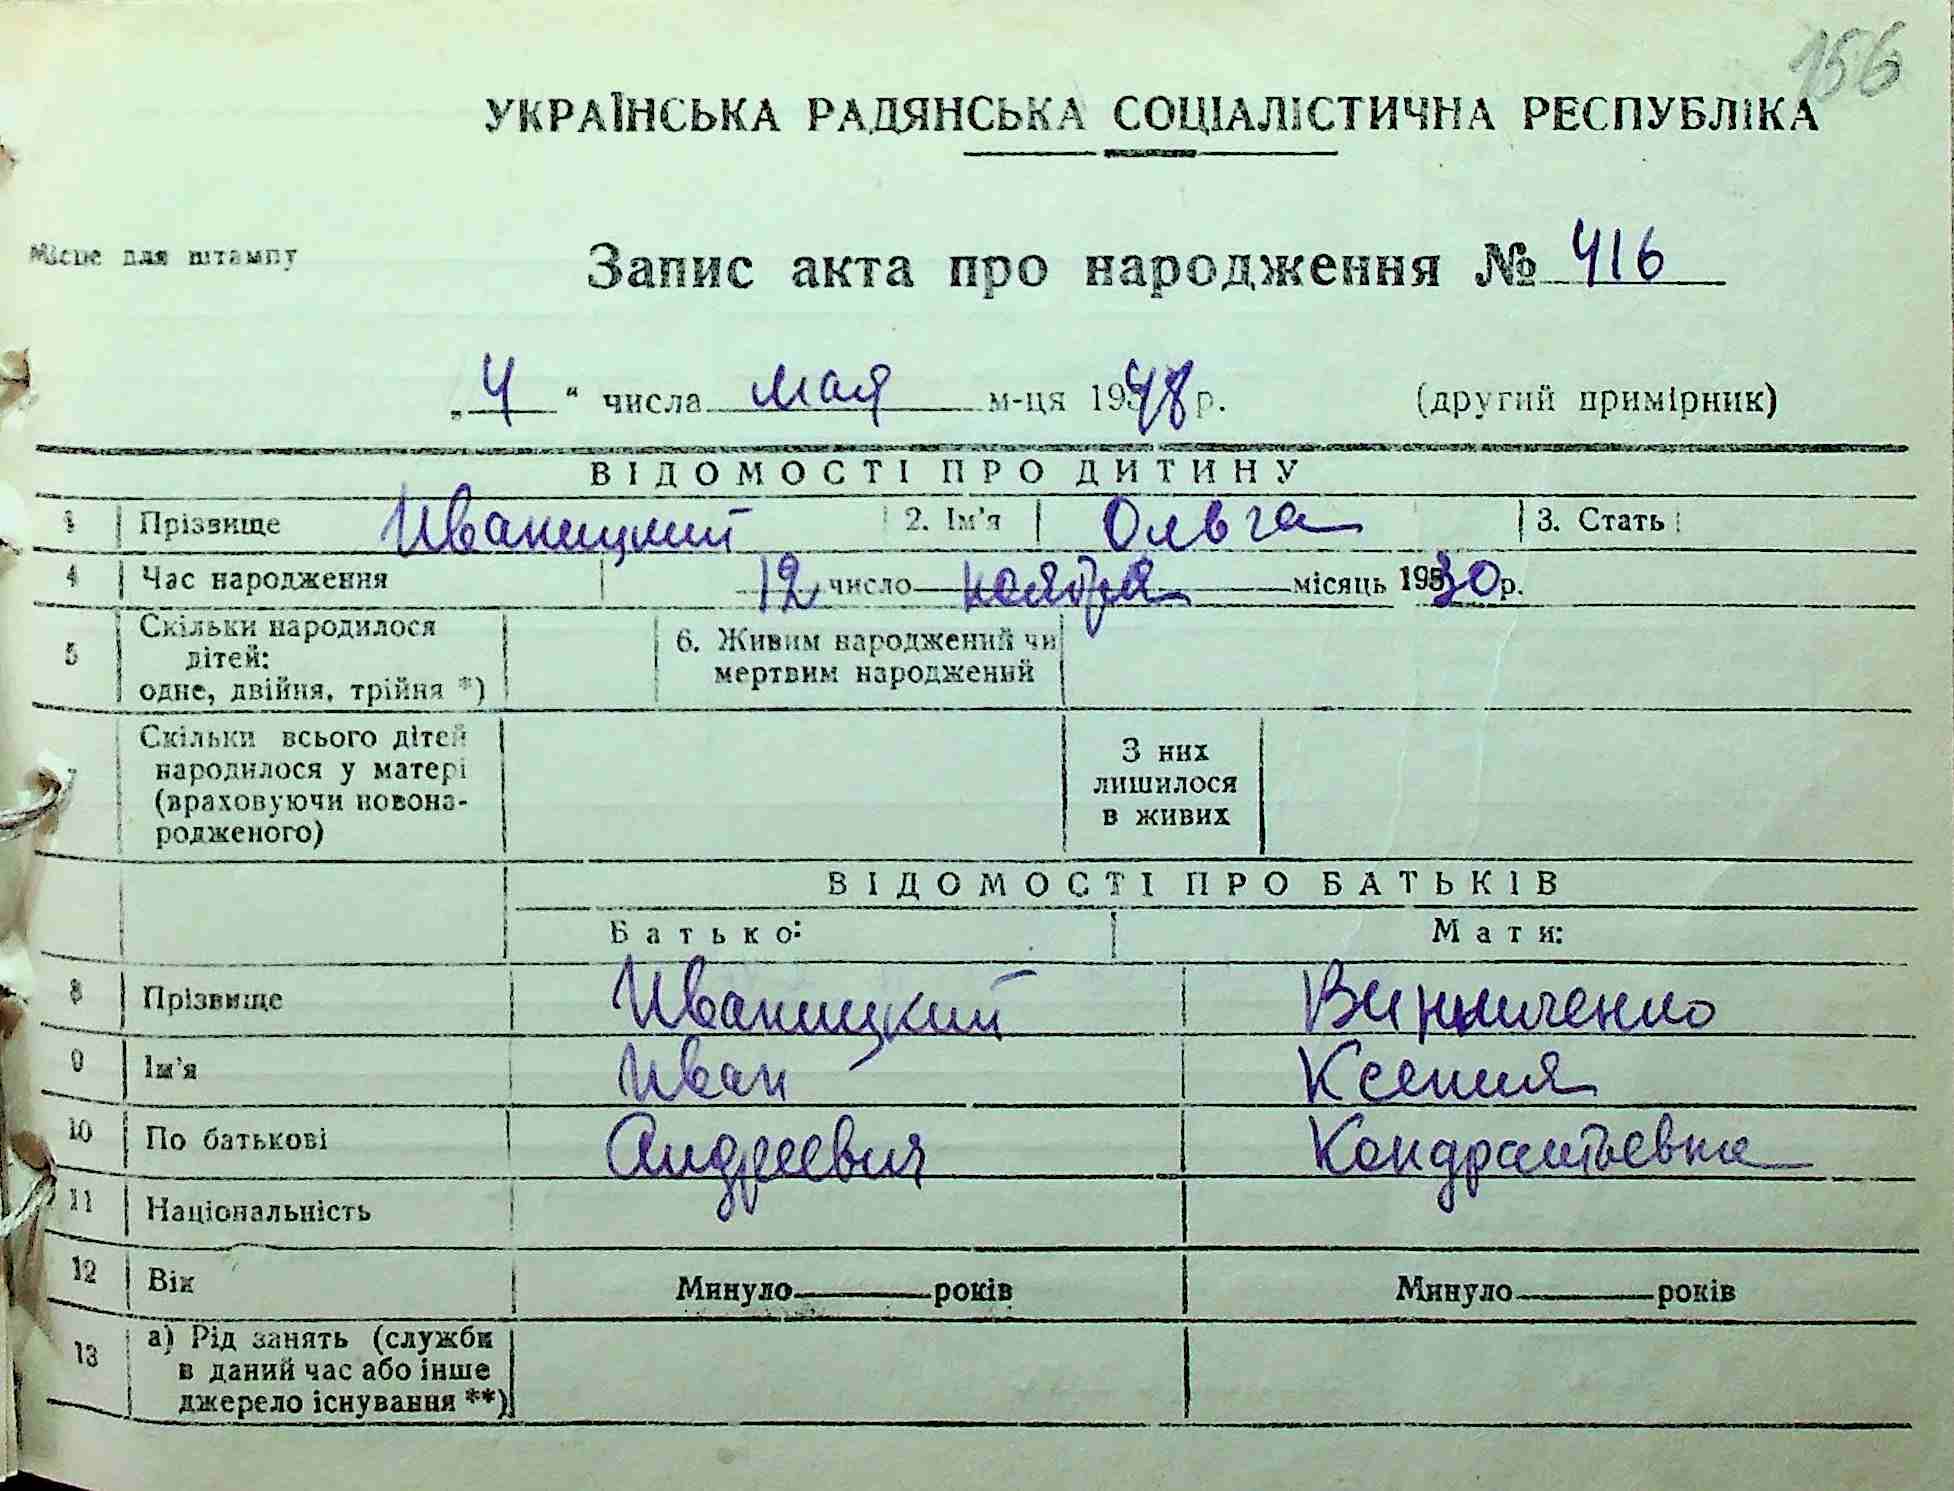 156
УКРАЇНСЬКА РАДЯНСЬКА СОЦІАЛІСТИЧНА РЕСПУБЛІКА
Місце для штампу
Запис акта про народження № 416
„ 4 “ числа мая м-ця 1948 р. (другий примірник)
ВІДОМОСТІ ПРО ДИТИНУ
1 Прізвище Иваницкий 2. Ім’я Ольга 3. Стать
4 Час народження 12 число ноября місяць 1930 р.
5 Скільки народилося дітей: одне, двійня, трійня *) 6. Живим народжений чи мертвим народжений
7 Скільки всього дітей народилося у матері (враховуючи новонародженого) З них лишилося в живих
ВІДОМОСТІ ПРО БАТЬКІВ
Батько: Мати:
8 Прізвище Иваницкий Винниченко
9 Ім’я Иван Ксения
10 По батькові Андреевич Кондратьевна
11 Національність
12 Вік Минуло років Минуло років
13 а) Рід занять (служби в даний час або інше джерело існування **)